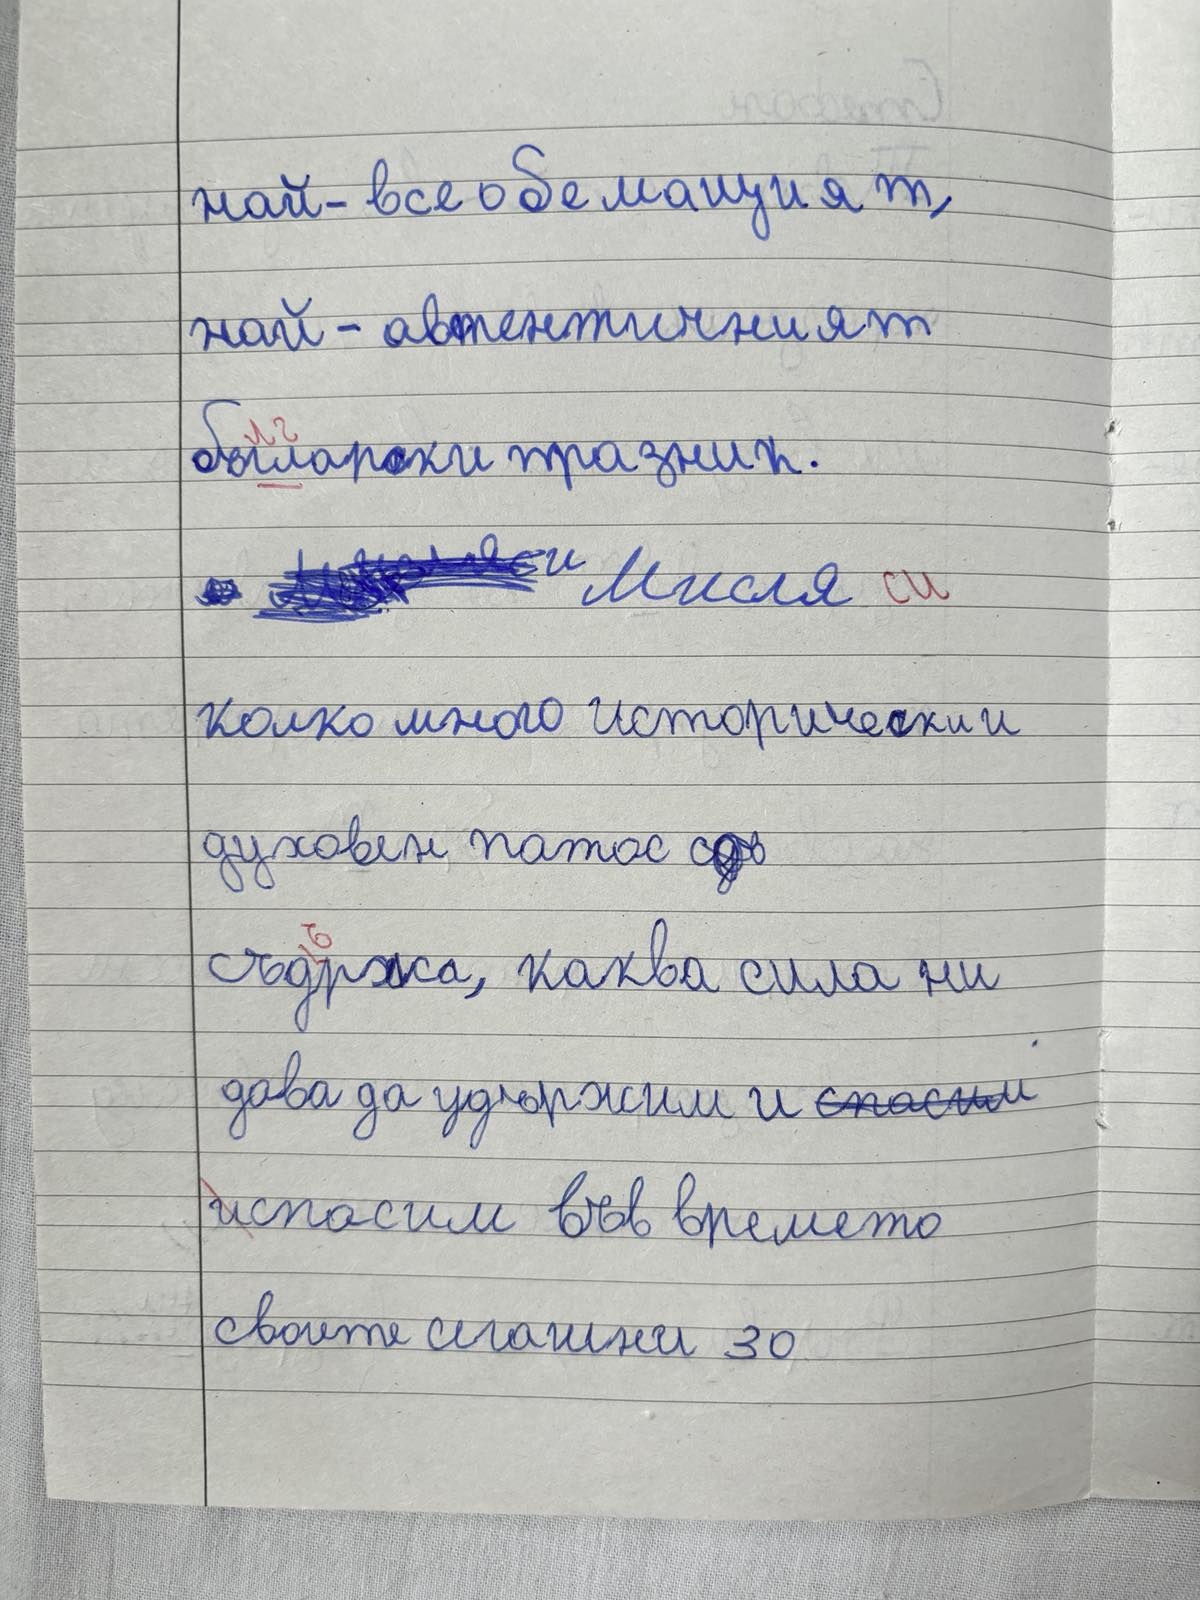 най-всеобемащият,
най-автентичният
бългларски празник.
Мисля си
колко много исторически и
духовен патос
съдржа, каква сила ни
дава да удържим и спасим
испасим във времето
своите сгашни 30